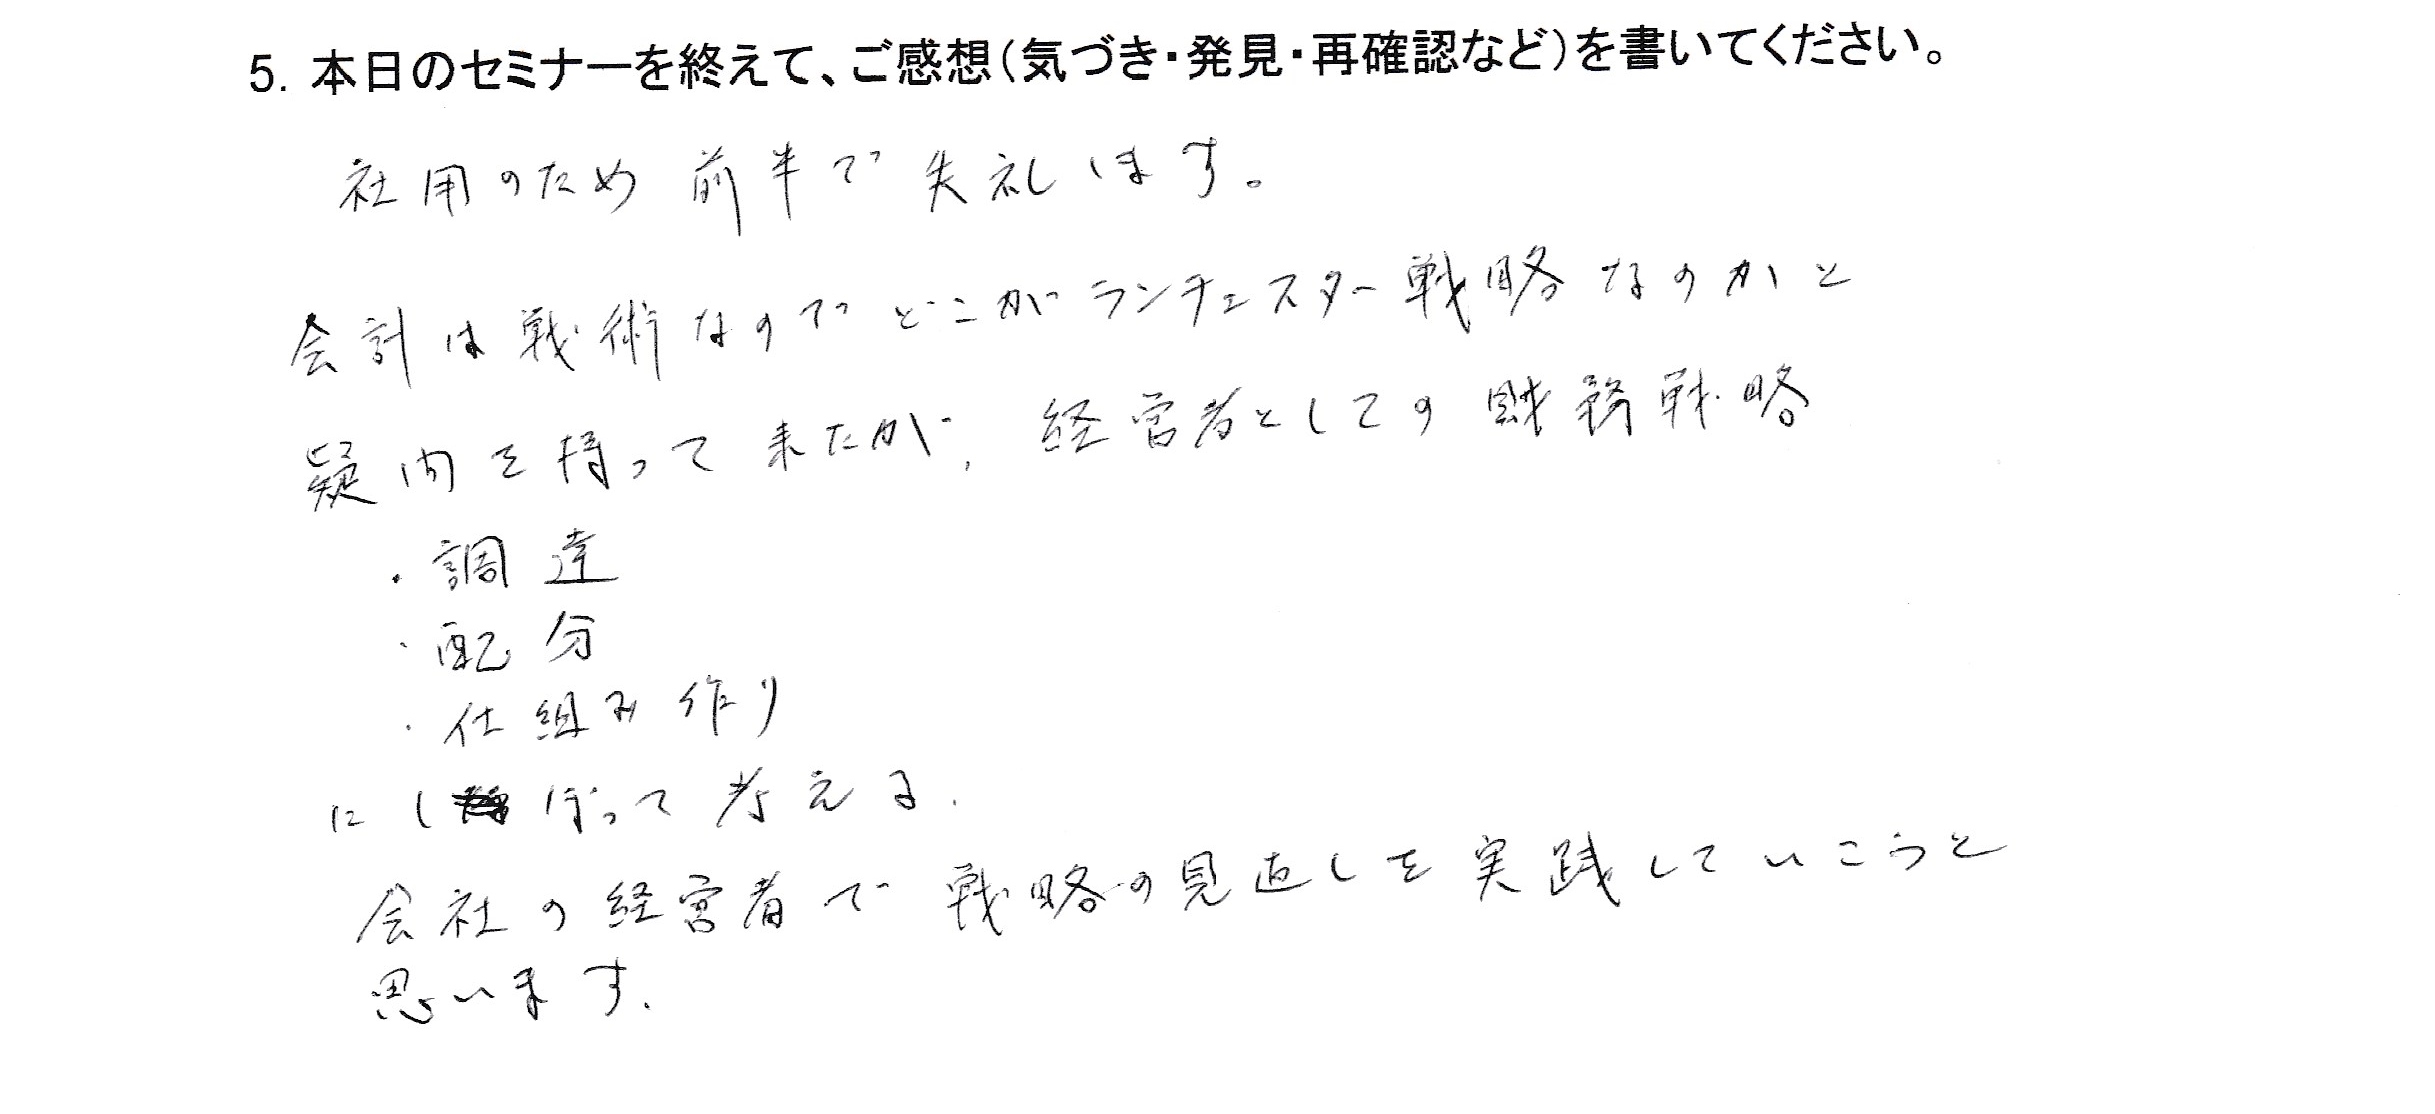 5. 本日のセミナーを終えて、ご感想（気づき・発見・再確認など）を書いてください。
社用のため 前半で失礼します。
会計は戦術なのでどこがランチェスター戦略なのかと
疑問を持って来たが、経営者としての財務戦略
・調達
・配分
・仕組み作り
にしぼって考える.
会社の経営者で戦略の見直しを実践していこうと
思います.